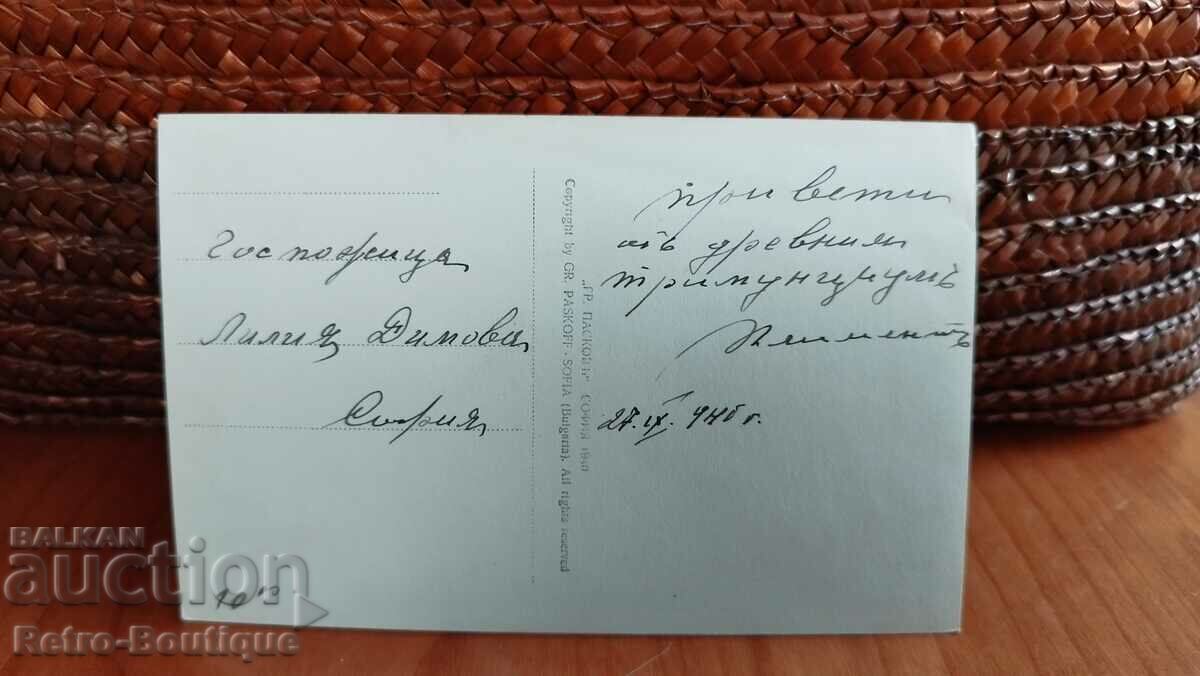 Госпожица
Лилия Димова
София
"ГР. ПАСКОВЪ" СОФИЯ 1940
Copyright by GR. PASKOFF - SOFIA (Bulgaria). All rights reserved
привети
отъ древния
тримунциумъ
Климентъ
27.IX. 940 г.
10⁰⁰
BALKAN
auction
Retro-Boutique